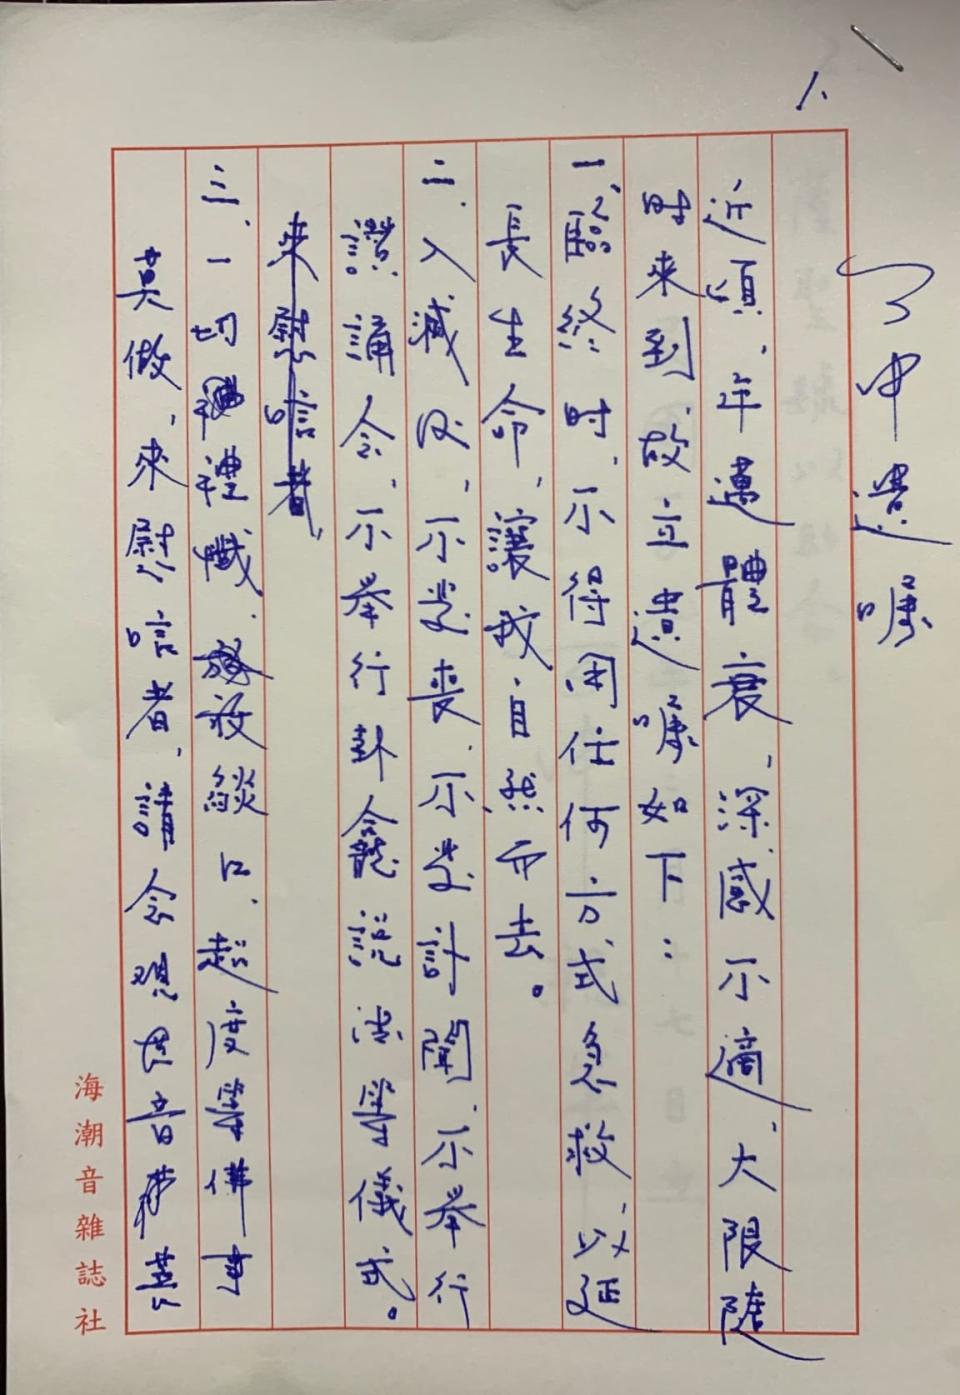 1、
了中遺囑
近頃，年邁體衰，深感不適，大限隨
時來到，故立遺囑如下：
一、臨終時，不得用任何方式急救，以延
長生命，讓我自然而去。
二、入滅後，不發喪，不發訃聞，不舉行
讚誦念，不舉行封龕說法等儀式。
來慰唁者，
三、一切禮懺、放燄口、超度等佛事
莫做，來慰唁者，請念觀世音菩薩
海潮音雜誌社